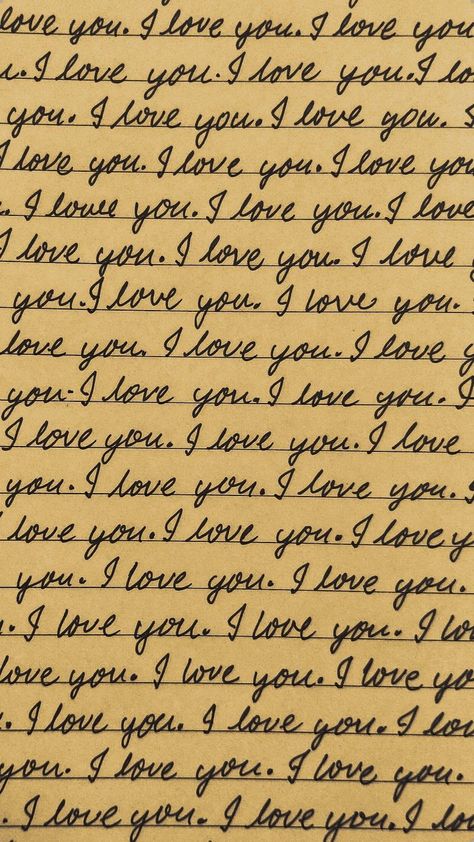 love you. I love you. I love you
u. I love you. I love you. I lo
you. I love you. I love you.
I love you. I love you. I love you
. I love you. I love you. I love
I love you. I love you. I love
you. I love you. I love you.
love you. I love you. I love y
you. I love you. I love you. I
I love you. I love you. I love
you. I love you. I love you. I
I love you. I love you. I love y
you. I love you. I love you.
. I love you. I love you. I lo
love you. I love you. I love yo
. I love you. I love you. I lov
you. I love you. I love you.
. I love you. I love you. I lo